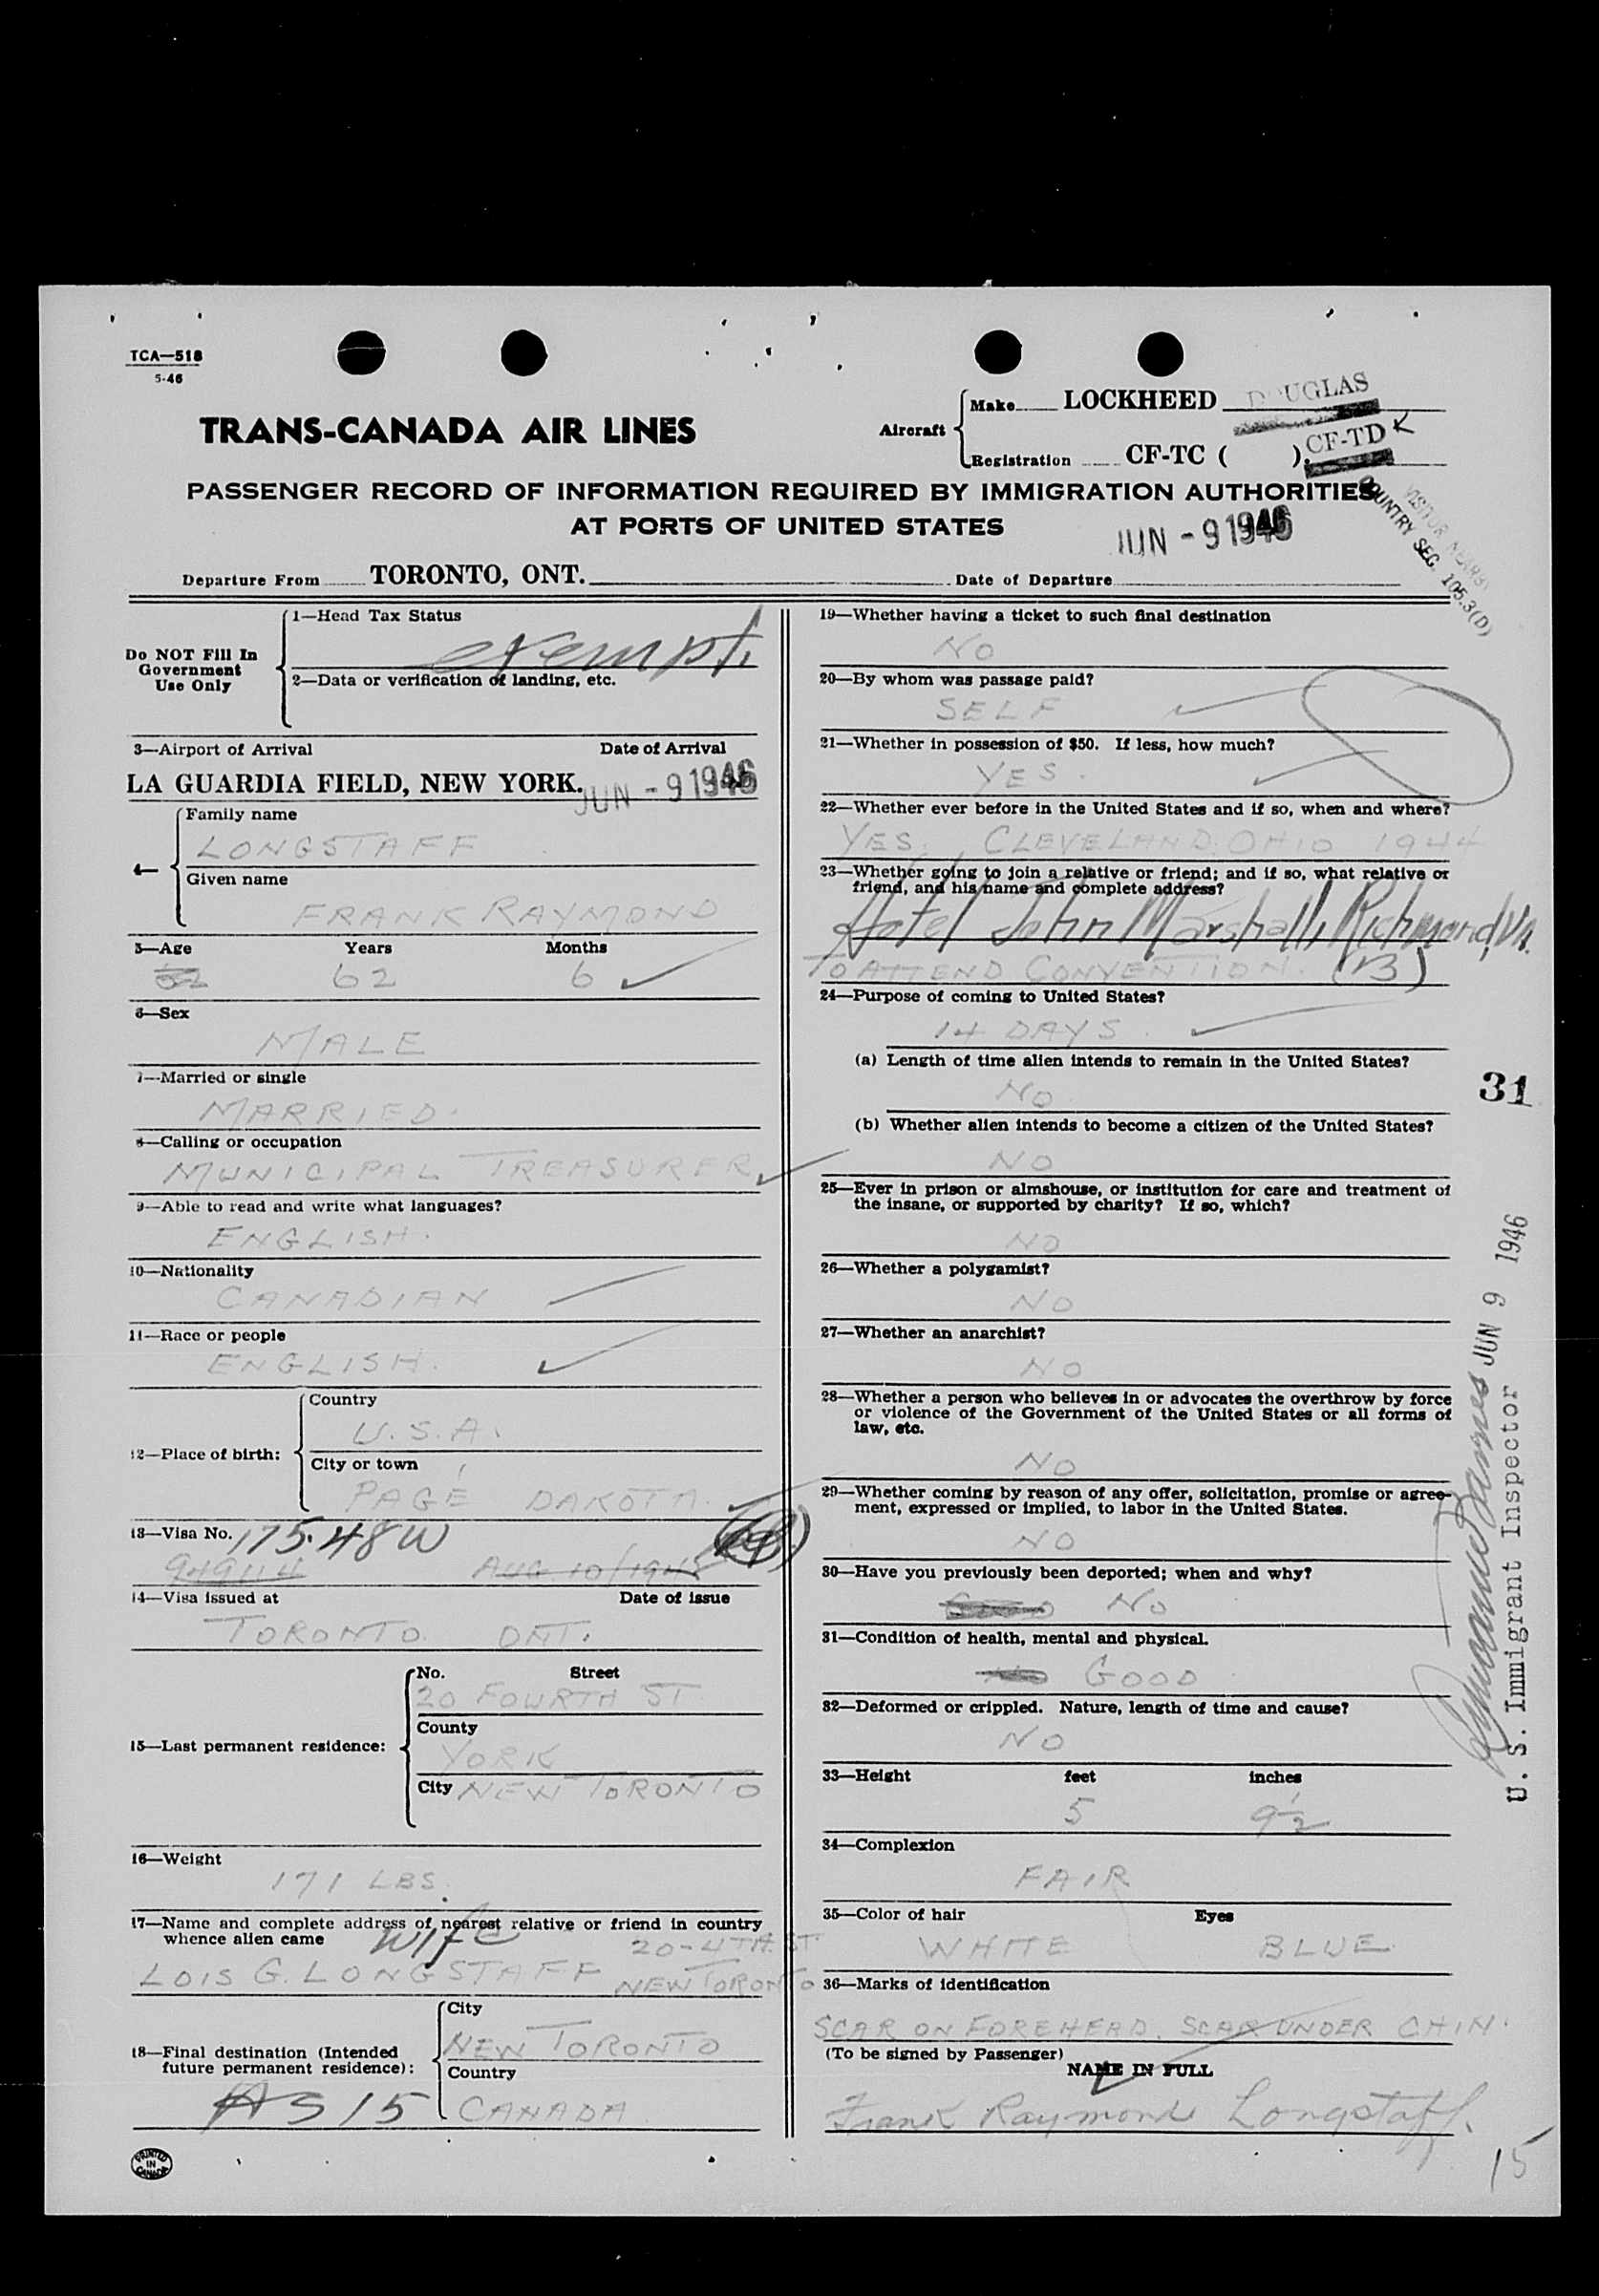 TCA—518
5-46
TRANS-CANADA AIR LINES
Aircraft
Make LOCKHEED DOUGLAS
Registration CF-TC ( ). CF-TD K
PASSENGER RECORD OF INFORMATION REQUIRED BY IMMIGRATION AUTHORITIES
AT PORTS OF UNITED STATES
JUN - 9 1946
VISITOR NEARBY
COUNTRY SEC. 105.3(D)
Departure From TORONTO, ONT. Date of Departure
Do NOT Fill In
Government
Use Only
1—Head Tax Status
exempt.
2—Data or verification of landing, etc.
3—Airport of Arrival Date of Arrival
LA GUARDIA FIELD, NEW YORK. JUN - 9 1946
4—
Family name
LONGSTAFF
Given name
FRANK RAYMOND
5—Age Years Months
62 62 6
6—Sex
MALE
7—Married or single
MARRIED.
8—Calling or occupation
MUNICIPAL TREASURER
9—Able to read and write what languages?
ENGLISH.
10—Nationality
CANADIAN
11—Race or people
ENGLISH.
12—Place of birth:
Country
U.S.A.
City or town
PAGE DAKOTA.
13—Visa No. 175.48W
AUG. 10/1945
14—Visa issued at Date of issue
TORONTO ONT.
15—Last permanent residence:
No. Street
20 FOURTH ST
County
YORK
City NEW TORONTO
16—Weight
171 LBS.
17—Name and complete address of nearest relative or friend in country
whence alien came wife 20-4TH. ST.
LOIS G. LONGSTAFF NEW TORONTO
18—Final destination (Intended
future permanent residence):
City
NEW TORONTO
Country
AS 15 CANADA
PRINTED
IN
CANADA
19—Whether having a ticket to such final destination
NO
20—By whom was passage paid?
SELF
21—Whether in possession of $50. If less, how much?
YES.
22—Whether ever before in the United States and if so, when and where?
YES. CLEVELAND. OHIO 1944
23—Whether going to join a relative or friend; and if so, what relative or
friend, and his name and complete address?
Hotel John Marshall, Richmond, Va.
TO ATTEND CONVENTION. (B)
24—Purpose of coming to United States?
14 DAYS.
(a) Length of time alien intends to remain in the United States?
NO
(b) Whether alien intends to become a citizen of the United States?
NO
25—Ever in prison or almshouse, or institution for care and treatment of
the insane, or supported by charity? If so, which?
NO
26—Whether a polygamist?
NO
27—Whether an anarchist?
NO
28—Whether a person who believes in or advocates the overthrow by force
or violence of the Government of the United States or all forms of
law, etc.
NO
29—Whether coming by reason of any offer, solicitation, promise or agree-
ment, expressed or implied, to labor in the United States.
NO
30—Have you previously been deported; when and why?
NO
31—Condition of health, mental and physical.
GOOD
32—Deformed or crippled. Nature, length of time and cause?
NO
33—Height feet inches
5 9½
34—Complexion
FAIR
35—Color of hair Eyes
WHITE BLUE
36—Marks of identification
SCAR ON FOREHEAD. SCAR UNDER CHIN.
(To be signed by Passenger)
NAME IN FULL
Frank Raymond Longstaff.
15
31
JUN 9 1946
U. S. Immigrant Inspector